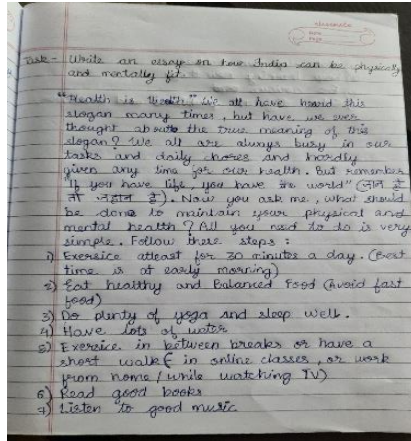 classmate
Date
Page
Task - Write an essay on how India can be physically
and mentally fit.
"Health is Wealth" We all have heard this
slogan many times, but have we ever
thought about the true meaning of this
slogan? We all are always busy in our
tasks and daily chores and hardly
given any time for our health. But remember
"If you have life, you have the world" (जान है
तो जहान है). Now you ask me, what should
be done to maintain your physical and
mental health? All you need to do is very
simple. Follow these steps :
1) Exersice atleast for 30 minutes a day. (Best
time is at early morning)
2) Eat healthy and Balanced Food (Avoid fast
food)
3) Do plenty of yoga and sleep well.
4) Have lots of water
5) Exersice in between breaks or have a
short walk (in online classes, or work
from home / while watching TV)
6) Read good books
7) Listen to good music